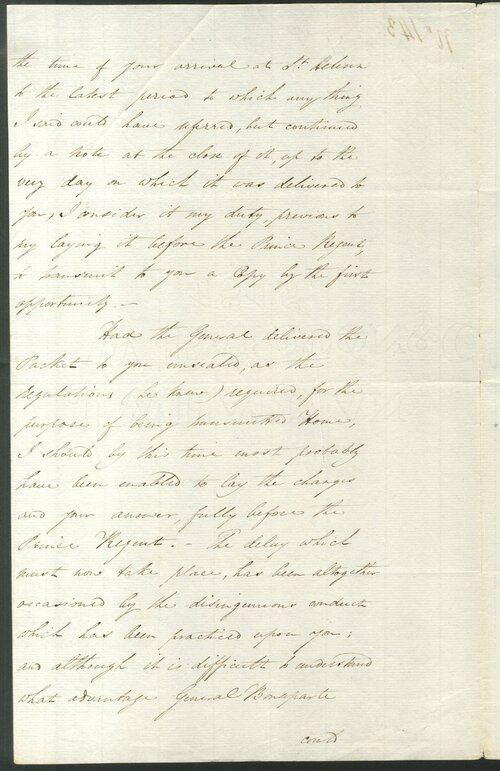 the time of your arrival at St. Helena
to the latest period to which any thing
I said could have referred, but continued
by a Note at the close of it, up to the
very day on which it was delivered to
you, I consider it my duty, previous to
my laying it before the Prince Regent,
to transmit to you a Copy by the first
opportunity. —
Had the General delivered the
Packet to you unsealed, as the
regulations (he knew) required, for the
purpose of being transmitted Home,
I should by this time most probably
have been enabled to lay the charges
and your answer, fully before the
Prince Regent. — The delay which
must now take place, has been altogether
occasioned by the disingenuous conduct
which has been practiced upon you;
and although it is difficult to understand
what advantage General Bonaparte
could